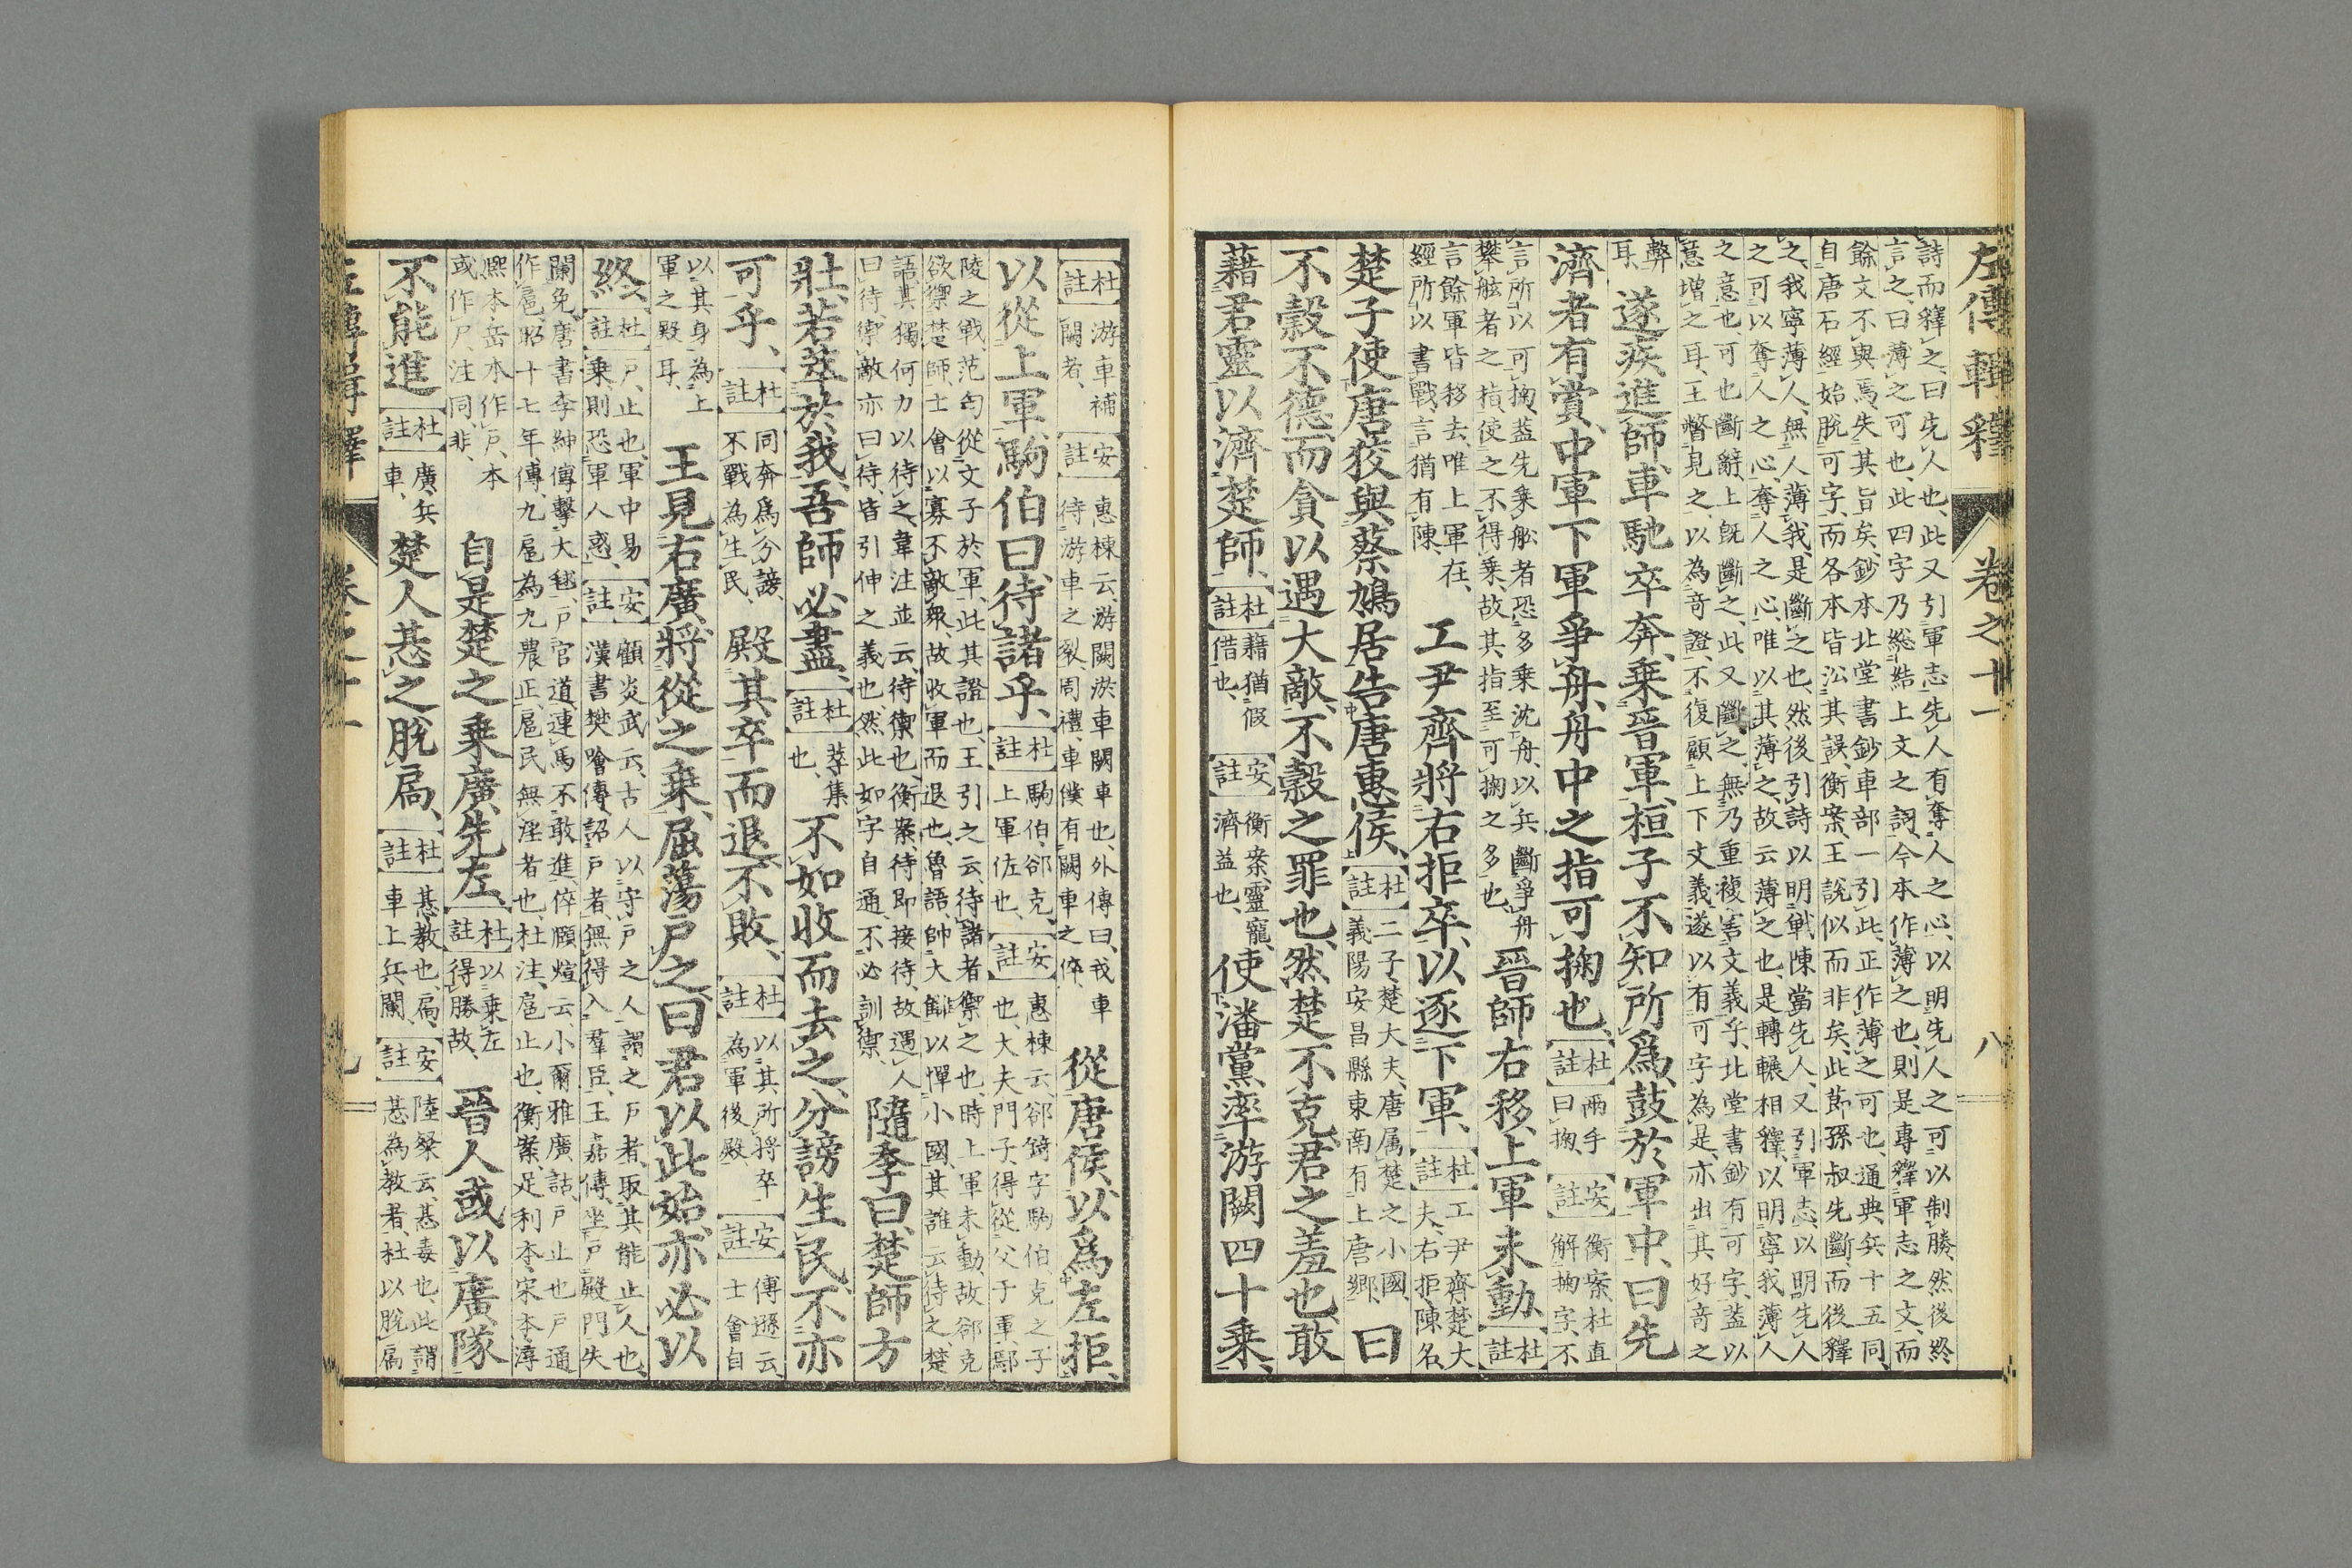 左傳輯釋 卷之十一 八
詩而釋之、曰先人也、此又引軍志先人有奪人之心、以明先人之可以制勝、然後終
言之、曰薄之可也、此四字乃総結上文之詞、今本作薄之也、則是專釋軍志之文、而
餘文不與焉、失其旨矣、鈔本北堂書鈔車部一引此、正作薄之可也、通典兵十五同、
自唐石經始脫可字、而各本皆沿其誤、衡案、王說似而非矣、此節孫叔先斷、而後釋
之、我寧薄人、無人薄我、是斷之也、然後引詩以明戰陳當先人、又引軍志、以明先人
之可以奪人之心、奪人之心、唯以其薄之、故云薄之也、是轉輾相釋、以明寧我薄人
之意也、可也斷辭、上既斷之、此又斷之、無乃重複害文義乎、北堂書鈔有可字、蓋以
意增之耳、王瞥見之、以為奇證、不復顧上下文義、遂以有可字為是、亦出其好奇之
弊耳、遂疾進師、車馳卒奔、乗晉軍、桓子不知所爲、鼓於軍中、曰先
濟者有賞、中軍下軍爭舟、舟中之指可掬也、杜註兩手曰掬、安註衡案、杜直解掬字、不
言所以可掬、蓋先乗舩者恐多乗沈舟、以兵斷爭舟攀舷者之指、使之不得乗、故其指至可掬之多也、晉師右移、上軍未動、杜註
言餘軍皆移去、唯上軍在、經所以書戰、言猶有陳、工尹齊將右拒卒、以逐下軍、杜註工尹齊、楚大夫、右拒、陳名、
楚子使唐狡與蔡鳩居告唐惠侯、杜註二子、楚大夫、唐属楚之小國、義陽安昌縣東南有上唐郷、曰
不穀不德而貪、以遇大敵、不穀之罪也、然楚不克、君之羞也、敢
藉君靈、以濟楚師、杜註藉猶假借也、安註衡案、靈寵、濟益也、使潘黨率游闕四十乗、
杜註游車補闕者、安註惠棟云、游闕游車闕車也、外傳曰、戎車待游車之裂、周禮、車僕有闕車之倅、從唐侯、以爲左拒、
以從上軍、駒伯曰、待諸乎、杜註駒伯、郤克、上軍佐也、安註惠棟云、郤錡字駒伯、克之子也、大夫門子、得從父于軍、鄢
陵之戰、范匄從文子於軍、此其證也、王引之云、待諸者禦之也、時上軍未動、故郤克
欲禦楚師、士會以寡不敵衆、故收軍而退也、魯語、帥大讎以憚小國、其誰云待之、楚
語、其獨何力以待之、韋注並云、待禦也、衡案、待即接待、故遇人
曰待、禦敵亦曰待、皆引伸之義也、然此如字自通、不必訓禦、隨季曰、楚師方
壯、若萃於我、吾師必盡、杜註萃集也、不如收而去之、分謗生民、不亦
可乎、杜註同奔爲分謗、不戰為生民、殿其卒而退、不敗、杜註以其所将卒為軍後殿、安註傳遜云、士會自
以其身為上軍之殿耳、王見右廣、將從之乗、屈蕩戶之、曰君以此始、亦必以
終、杜註戶、止也、軍中易乗則恐軍人惑、安註顧炎武云、古人以守戶之人謂之戶者、取其能止人也、漢書樊噲傳、詔戶者、無得入羣臣、王嘉傳、坐戶殿門失
闌免、唐書李紳傳、擊大毬、戶官道、連馬不敢進、倅願煌云、小爾雅廣詁戶止也、戶通
作扈、昭十七年傳、九扈為九農正、扈民無淫者也、杜注、扈止也、衡案、足利本、宋本、淳
熈本岳本作戶、本或作尸、注同、非、自是楚之乗廣、先左、杜註以乗左得勝故、晉人或以廣隊
不能進、杜註廣、兵車、楚人惎之脫扃、杜註惎教也、扃、車上兵闌、安註陸粲云、惎毒也、此謂惎為教者、杜以脫扃
左傳輯釋 卷之十一 九